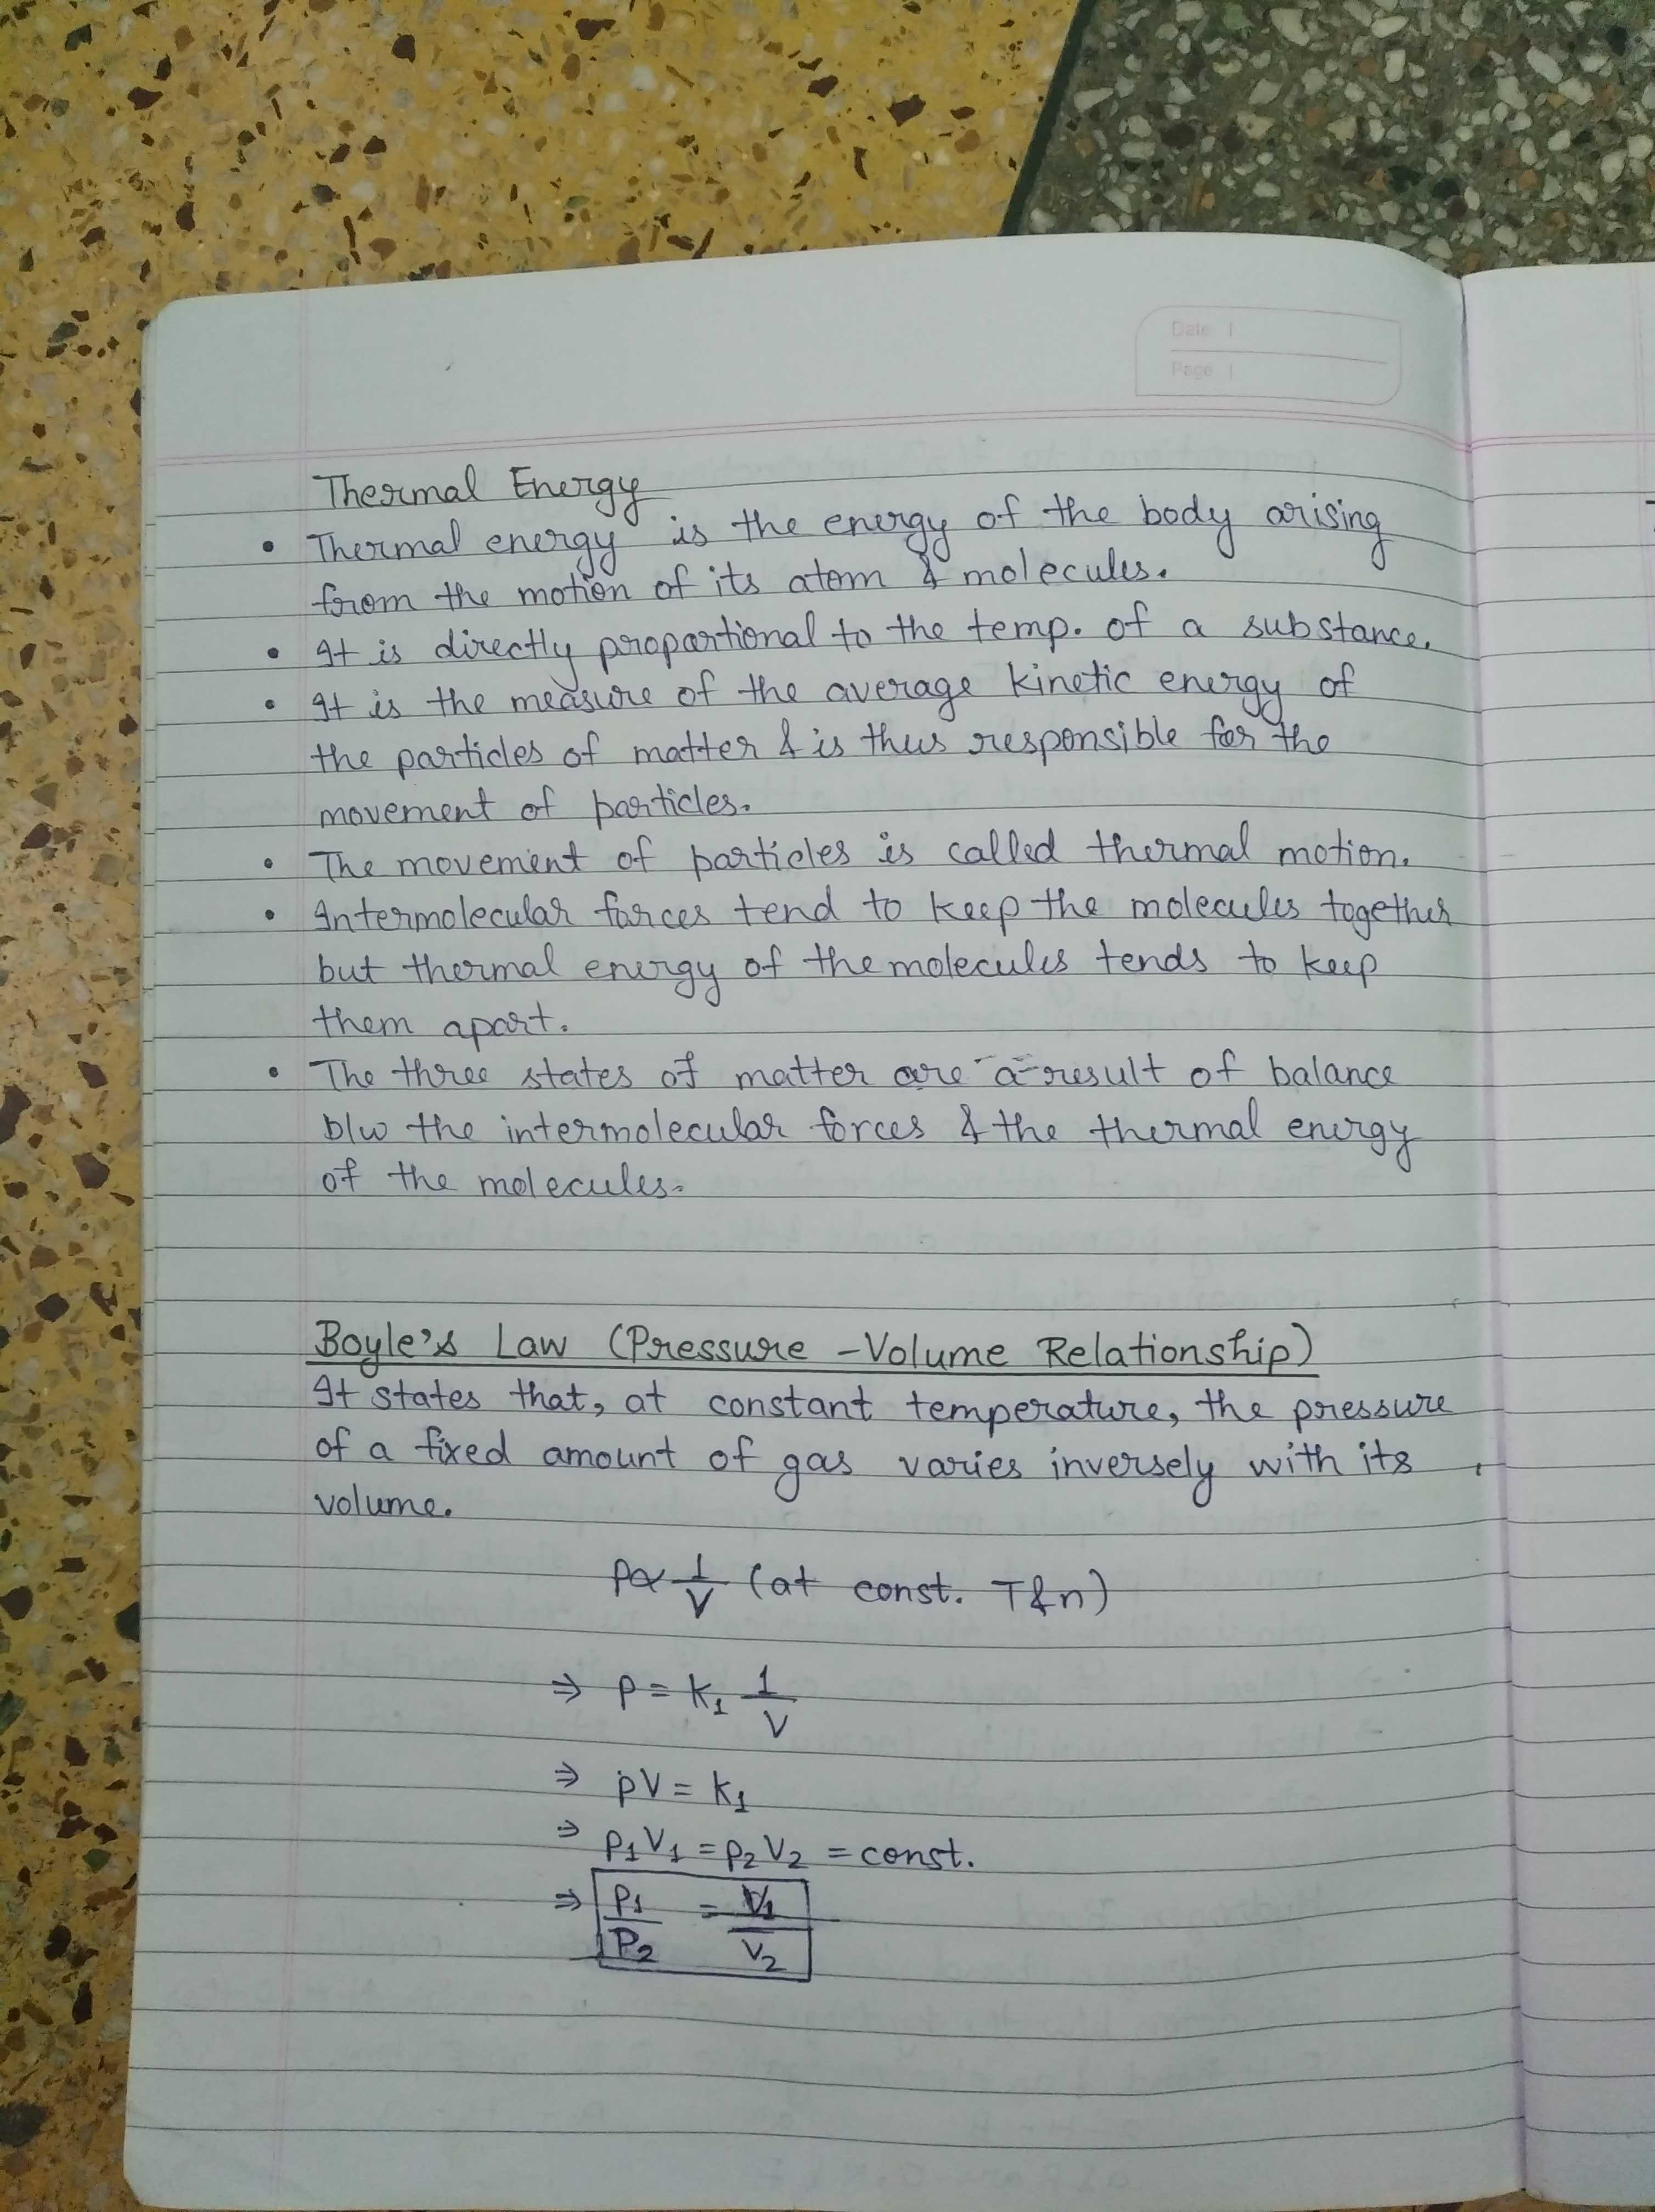 Date
Page
Thermal Energy
• Thermal energy is the energy of the body arising
from the motion of its atom & molecules.
• It is directly proportional to the temp. of a substance.
• It is the measure of the average kinetic energy of
the particles of matter & is thus responsible for the
movement of particles.
• The movement of particles is called thermal motion.
• Intermolecular forces tend to keep the molecules together
but thermal energy of the molecules tends to keep
them apart.
• The three states of matter are a result of balance
b/w the intermolecular forces & the thermal energy
of the molecules.
Boyle's Law (Pressure - Volume Relationship)
It states that, at constant temperature, the pressure
of a fixed amount of gas varies inversely with its
volume.
p∝ 1/V (at const. T & n)
⇒ p = k₁ 1/V
⇒ pV = k₁
⇒ p₁V₁ = p₂V₂ = const.
⇒ p₁/P₂ = V₁/V₂